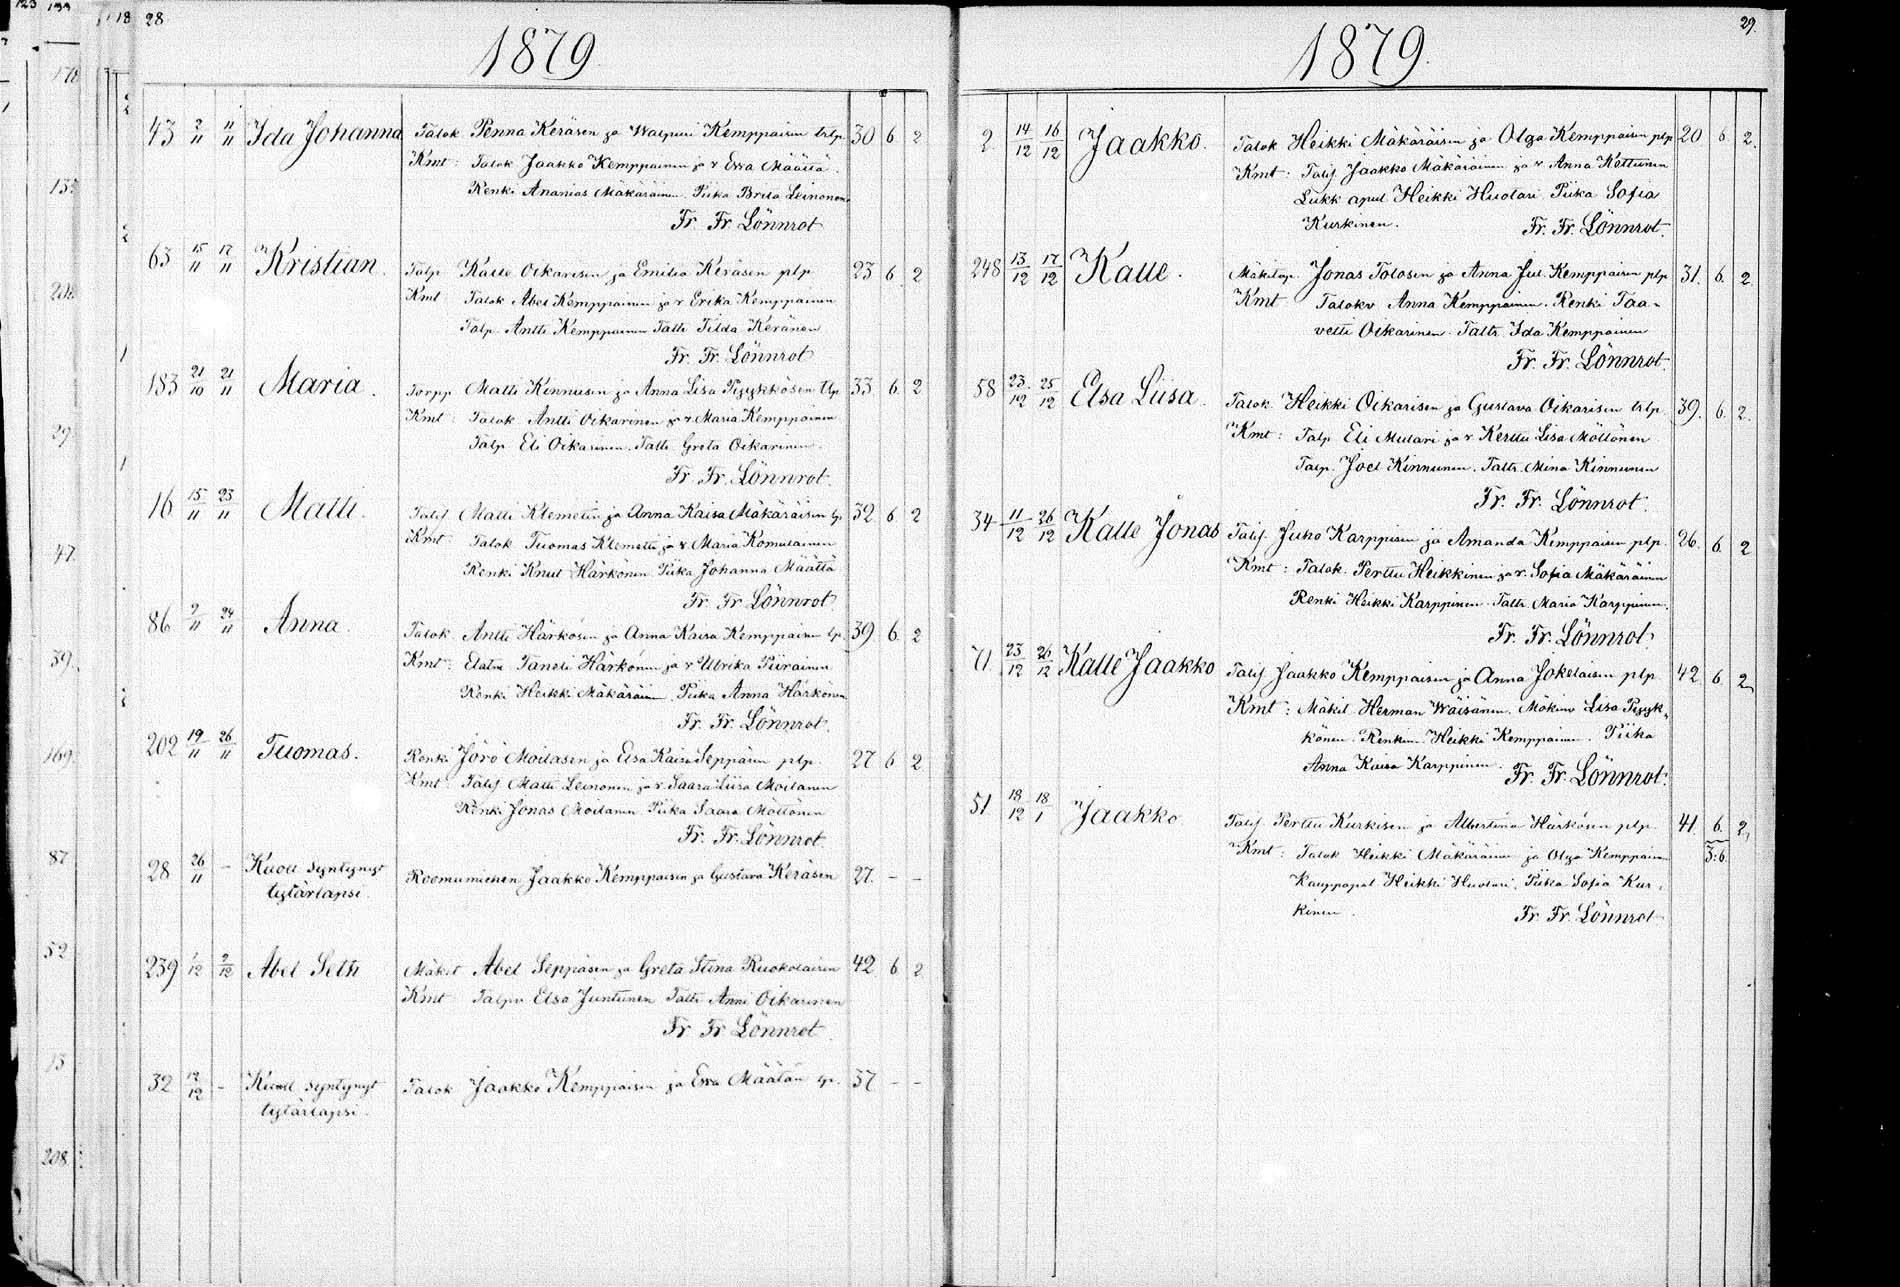 28
1879.
43 2/11 11/11 Ida Johanna Talok Penna Keräsen ja Walpuri Kemppaisen trlp. 30 6 2
Kmt: Talok Jaakko Kemppainen ja v Ewa Määttä.
Renki Ananias Mäkäräinen. Piika Brita Leinonen.
Fr. Fr. Lönnrot
63 15/11 17/11 Kristian. Talp Kalle Oikarisen ja Emilia Keräsen plp 23 6 2
Kmt Talok Abel Kemppainen ja v Erika Kemppainen
Talp. Antti Kemppainen Taltt Tilda Keränen
Fr. Fr. Lönnrot
183 21/10 21/11 Maria. Torpp Matti Kinnusen ja Anna Lisa Pyykkösen tlp 33 6 2
Kmt: Talok Antti Oikarinen ja v. Maria Kemppainen
Talp Eli Oikarinen. Taltt. Greta Oikarinen.
Fr. Fr. Lönnrot.
16 15/11 23/11 Matti. Talij Matti Klemetin ja Anna Kaisa Mäkäräisen lp. 32 6 2
Kmt: Talok Tuomas Klemetti ja v. Maria Komulainen
Renki Knut Härkönen Piika Johanna Määttä
Fr. Fr. Lönnrot.
86 7/11 24/11 Anna. Talok. Antti Härkösen ja Anna Kaisa Kemppaisen lp. 39. 6. 2
Kmt: Taneli Härkönen ja v Ulrika Piirainen
Renki Heikki Mäkäräinen. Piika Anna Härkönen
Fr. Fr. Lönnrot.
202 19/11 26/11 Tuomas. Renki Jörö Moilasen ja Elsa Kaisa Seppäsen plp. 27 6 2
Kmt: Talij Matti Leinonen ja v. Saara Liisa Moilanen
Renki Jonas Moilanen Piika Saara Möttönen
Fr. Fr. Lönnrot.
28 26/11 - Kuoll. syntynyt Roomumiehen Jaakko Kemppaisen ja Gustava Keräsen 27. - -
tytärlapsi.
239 1/12 2/12 Abel Seth Mäkit Abel Seppäsen ja Greta Stina Ruokolaisen 42 6 2
Kmt Talpv Elsa Juntunen Taltt Anni Oikarinen
Fr Fr Lönnrot.
32 12/12 - Kuoll syntynyt Talok Jaakko Kemppaisen ja Ewa Määtän lp. 37 - -
tytärlapsi.
29.
1879.
2. 14/12 16/12 Jaakko. Talok Heikki Mäkäräisen ja Olga Kemppaisen plp 20 6 2.
Kmt: Talij Jaakko Mäkäräinen ja v Anna Kettunen
Lukk apul Heikki Huotari Piika Sofia
Kurkinen. Fr. Fr. Lönnrot.
248 13/12 17/12 Kalle. Mäkitup. Jonas Tolosen ja Anna Jul. Kemppaisen plp 31. 6. 2.
Kmt Talokv Anna Kemppainen. Renki Taa-
vetti Oikarinen. Taltr. Ida Kemppainen
Fr. Fr. Lönnrot.
58 23/12 25/12 Elsa Liisa. Talok Heikki Oikarisen ja Gustava Oikarisen trlp. 39. 6. 2.
Kmt: Talp Eli Mulari ja v Kerttu Lisa Möttönen
Talp. Joel Kinnunen. Taltr. Mina Kinnunen
Fr. Fr. Lönnrot.
34 11/12 26/12 Kalle Jonas Talij. Juho Karppisen ja Amanda Kemppaisen plp. 26. 6. 2
Kmt: Talok. Perttu Heikkinen ja v. Sofia Mäkäräinen
Renki Heikki Karppinen. Taltr. Maria Karppinen.
Fr. Fr. Lönnrot.
71. 23/12 26/12 Kalle Jaakko Talij Jaakko Kemppaisen ja Anna Jokelaisen plp 42 6 2
Kmt: Mäkit Herman Wäisänen. Mökinv Lisa Pyyk-
könen. Heikki Kemppainen. Piika
Anna Kaisa Karppinen. Fr. Fr. Lönnrot.
51 18/12 18/1 Jaakko Talij Perttu Kurkisen ja Albertina Härkösen plp 41. 6. 2
Kmt: Talok Heikki Mäkäräinen ja Olga Kemppainen 3:6.
Kauppapal Heikki Huotari, Piika Sofia Kur-
kinen. Fr. Fr. Lönnrot